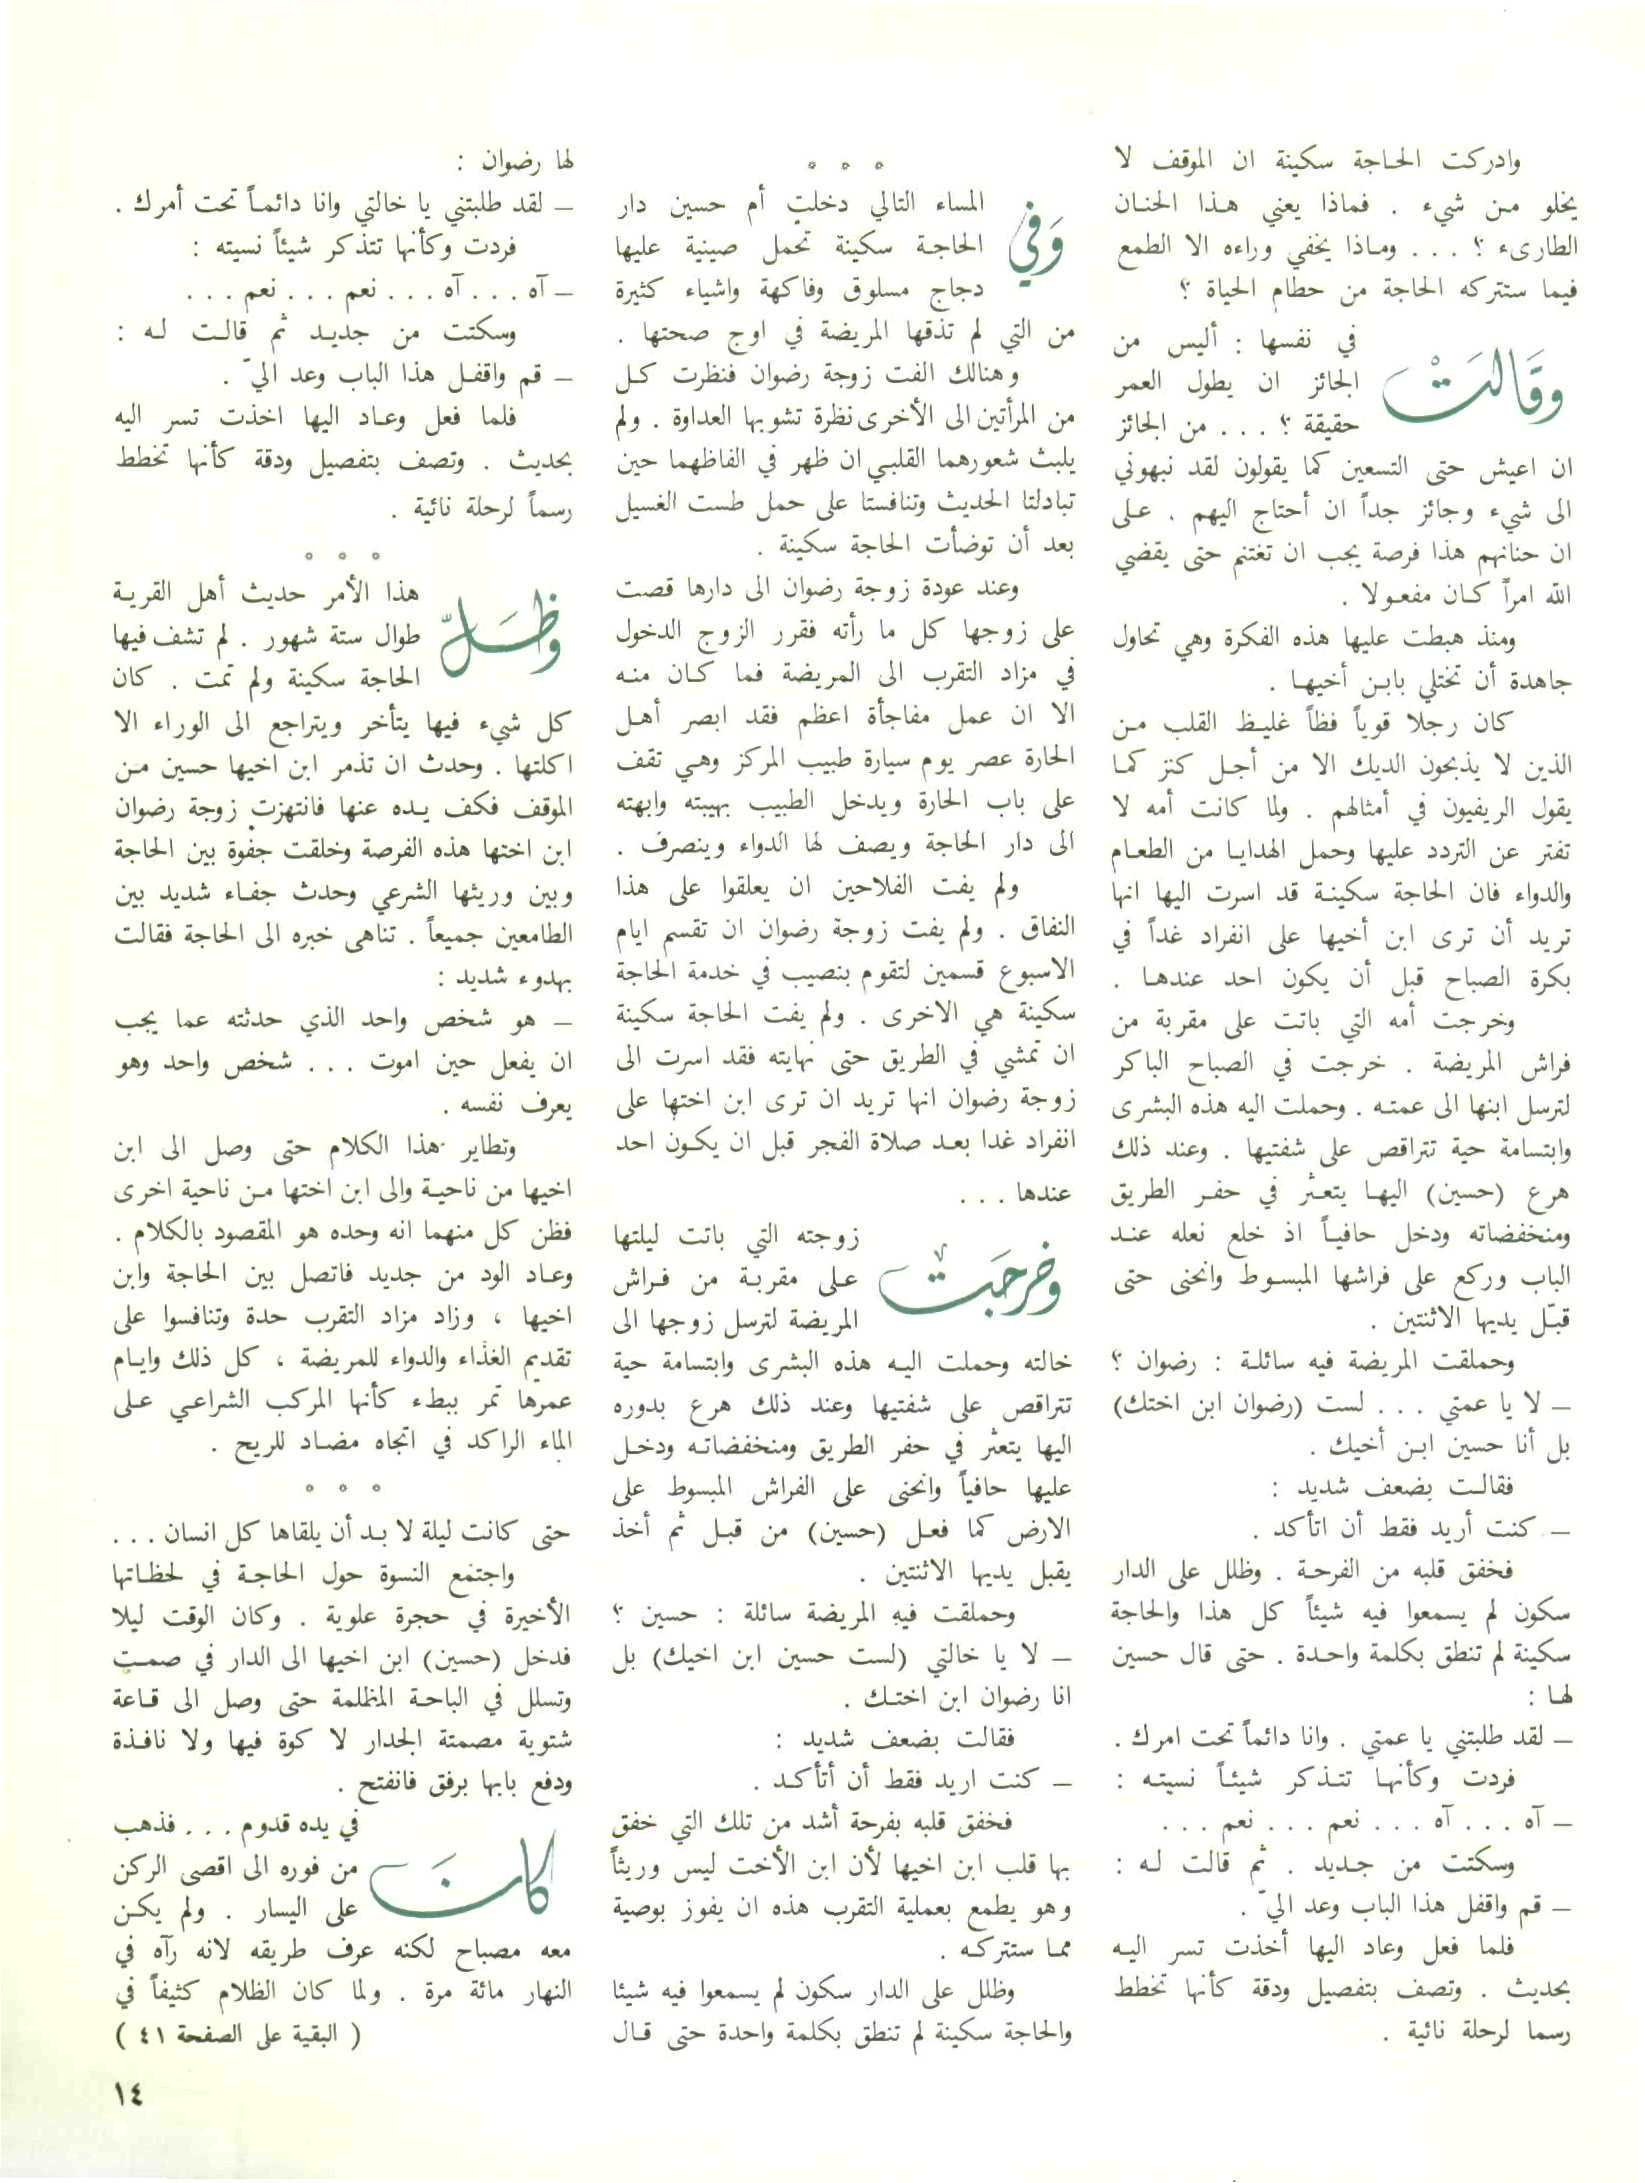 وادركت الحاجة سكينة ان الموقف لا
يخلو من شيء . فماذا يعني هذا الحنان
الطارىء ؟ . . . وماذا يخفي وراءه الا الطمع
فيما ستتركه الحاجة من حطام الحياة ؟
وقَالَتْ
في نفسها : أليس من
الجائز ان يطول العمر
حقيقة ؟ . . . من الجائز
ان اعيش حتى التسعين كما يقولون لقد نبهوني
الى شيء وجائز جداً ان أحتاج اليهم . على
ان حنانهم هذا فرصة يجب ان تغتنم حتى يقضي
الله امراً كان مفعولا .
ومنذ هبطت عليها هذه الفكرة وهي تحاول
جاهدة أن تختلي بابن أخيها .
كان رجلا قوياً فظاً غليظ القلب من
الذين لا يذبحون الديك الا من أجل كنز كما
يقول الريفيون في أمثالهم . ولما كانت أمه لا
تفتر عن التردد عليها وحمل الهدايا من الطعام
والدواء فان الحاجة سكينة قد اسرت اليها انها
تريد أن ترى ابن أخيها على انفراد غداً في
بكرة الصباح قبل أن يكون احد عندها .
وخرجت أمه التي باتت على مقربة من
فراش المريضة . خرجت في الصباح الباكر
لترسل ابنها الى عمته . وحملت اليه هذه البشرى
وابتسامة حية تتراقص على شفتيها . وعند ذلك
هرع (حسين) اليها يتعثر في حفر الطريق
ومنخفضاته ودخل حافياً اذ خلع نعله عند
الباب وركع على فراشها المبسوط وانحنى حتى
قبّل يديها الاثنتين .
وحملقت المريضة فيه سائلة : رضوان ؟
– لا يا عمتي . . . لست (رضوان ابن اختك)
بل أنا حسين ابن أخيك .
فقالت بضعف شديد :
– كنت أريد فقط أن اتأكد .
فخفق قلبه من الفرحة . وظلل على الدار
سكون لم يسمعوا فيه شيئاً كل هذا والحاجة
سكينة لم تنطق بكلمة واحدة . حتى قال حسين
لها :
– لقد طلبتني يا عمتي . وانا دائماً تحت امرك .
فردت وكأنها تتذكر شيئاً نسيته :
– آه . . . آه . . . نعم . . . نعم . . .
وسكتت من جديد . ثم قالت له :
– قم واقفل هذا الباب وعد اليّ .
فلما فعل وعاد اليها أخذت تسر اليه
بحديث . وتصف بتفصيل ودقة كأنها تخطط
رسما لرحلة نائية .
° ° °
وَفي
المساء التالي دخلت أم حسين دار
الحاجة سكينة تحمل صينية عليها
دجاج مسلوق وفاكهة واشياء كثيرة
من التي لم تذقها المريضة في اوج صحتها .
وهنالك الفت زوجة رضوان فنظرت كل
من المرأتين الى الأخرى نظرة تشوبها العداوة . ولم
يلبث شعورهما القلبي ان ظهر في الفاظهما حين
تبادلتا الحديث وتنافستا على حمل طست الغسيل
بعد أن توضأت الحاجة سكينة .
وعند عودة زوجة رضوان الى دارها قصت
على زوجها كل ما رأته فقرر الزوج الدخول
في مزاد التقرب الى المريضة فما كان منه
الا ان عمل مفاجأة اعظم فقد ابصر أهل
الحارة عصر يوم سيارة طبيب المركز وهي تقف
على باب الحارة ويدخل الطبيب بهيبته وابهته
الى دار الحاجة ويصف لها الدواء وينصرف .
ولم يفت الفلاحين ان يعلقوا على هذا
النفاق . ولم يفت زوجة رضوان ان تقسم ايام
الاسبوع قسمين لتقوم بنصيب في خدمة الحاجة
سكينة هي الاخرى . ولم يفت الحاجة سكينة
ان تمشي في الطريق حتى نهايته فقد اسرت الى
زوجة رضوان انها تريد ان ترى ابن اختها على
انفراد غدا بعد صلاة الفجر قبل ان يكون احد
عندها . . .
وخرجَت
زوجته التي باتت ليلتها
على مقربة من فراش
المريضة لترسل زوجها الى
خالته وحملت اليه هذه البشرى وابتسامة حية
تتراقص على شفتيها وعند ذلك هرع بدوره
اليها يتعثر في حفر الطريق ومنخفضاته ودخل
عليها حافياً وانحنى على الفراش المبسوط على
الارض كما فعل (حسين) من قبل ثم أخذ
يقبل يديها الاثنتين .
وحملقت فيه المريضة سائلة : حسين ؟
– لا يا خالتي (لست حسين ابن اخيك) بل
انا رضوان ابن اختك .
فقالت بضعف شديد :
– كنت اريد فقط أن أتأكد .
فخفق قلبه بفرحة أشد من تلك التي خفق
بها قلب ابن اخيها لأن ابن الأخت ليس وريثاً
وهو يطمع بعملية التقرب هذه ان يفوز بوصية
مما ستتركه .
وظلل على الدار سكون لم يسمعوا فيه شيئا
والحاجة سكينة لم تنطق بكلمة واحدة حتى قال
لها رضوان :
– لقد طلبتني يا خالتي وانا دائماً تحت أمرك .
فردت وكأنها تتذكر شيئاً نسيته :
– آه . . . آه . . . نعم . . . نعم . . .
وسكتت من جديد ثم قالت له :
– قم واقفل هذا الباب وعد اليّ .
فلما فعل وعاد اليها اخذت تسر اليه
بحديث . وتصف بتفصيل ودقة كأنها تخطط
رسماً لرحلة نائية .
° ° °
وظَلّ
هذا الأمر حديث أهل القرية
طوال ستة شهور . لم تشف فيها
الحاجة سكينة ولم تمت . كان
كل شيء فيها يتأخر ويتراجع الى الوراء الا
اكلتها . وحدث ان تذمر ابن اخيها حسين من
الموقف فكف يده عنها فانتهزت زوجة رضوان
ابن اختها هذه الفرصة وخلقت جفوة بين الحاجة
وبين وريثها الشرعي وحدث جفاء شديد بين
الطامعين جميعاً . تناهى خبره الى الحاجة فقالت
بهدوء شديد :
– هو شخص واحد الذي حدثته عما يجب
ان يفعل حين اموت . . . شخص واحد وهو
يعرف نفسه .
وتطاير هذا الكلام حتى وصل الى ابن
اخيها من ناحية والى ابن اختها من ناحية اخرى
فظن كل منهما انه وحده هو المقصود بالكلام .
وعاد الود من جديد فاتصل بين الحاجة وابن
اخيها ، وزاد مزاد التقرب حدة وتنافسوا على
تقديم الغذاء والدواء للمريضة ، كل ذلك وايام
عمرها تمر ببطء كأنها المركب الشراعي على
الماء الراكد في اتجاه مضاد للريح .
° ° °
حتى كانت ليلة لا بد أن يلقاها كل انسان . . .
واجتمع النسوة حول الحاجة في لحظاتها
الأخيرة في حجرة علوية . وكان الوقت ليلا
فدخل (حسين) ابن اخيها الى الدار في صمت
وتسلل في الباحة المظلمة حتى وصل الى قاعة
شتوية مصمتة الجدار لا كوة فيها ولا نافذة
ودفع بابها برفق فانفتح .
كانَ
في يده قدوم . . . فذهب
من فوره الى اقصى الركن
على اليسار . ولم يكن
معه مصباح لكنه عرف طريقه لانه رآه في
النهار مائة مرة . ولما كان الظلام كثيفاً في
( البقية على الصفحة ٤١ )
١٤